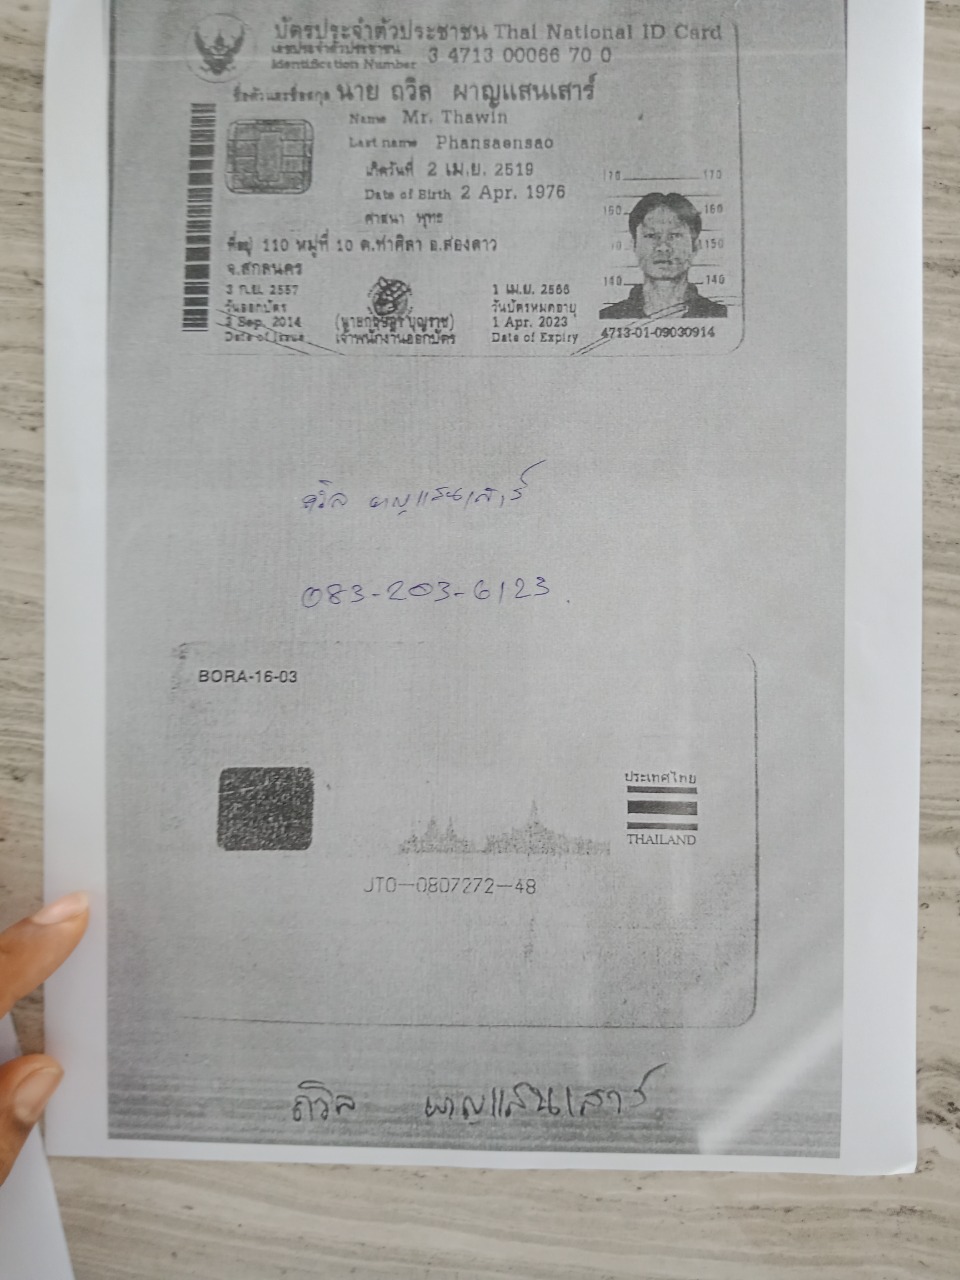 บัตรประจำตัวประชาชน Thai National ID Card
เลขประจำตัวประชาชน
Identification Number 3 4713 00066 70 0
ชื่อตัวและชื่อสกุล นาย ถวิล ผาญแสนเสาร์
Name Mr. Thawin
Last name Phansaensao
เกิดวันที่ 2 เม.ย. 2519
Date of Birth 2 Apr. 1976
ศาสนา พุทธ
ที่อยู่ 110 หมู่ที่ 10 ต.ท่าศิลา อ.ส่องดาว
จ.สกลนคร
3 ก.ย. 2557
วันออกบัตร
3 Sep. 2014
Date of Issue
เจ้าพนักงานออกบัตร
1 เม.ย. 2566
วันบัตรหมดอายุ
1 Apr. 2023
Date of Expiry
170 170
160 160
150
140 140
4713-01-09030914
ถวิล ผาญแสนเสาร์
083-203-6123
BORA-16-03
ประเทศไทย
THAILAND
JT0-0807272-48
ถวิล ผาญแสนเสาร์